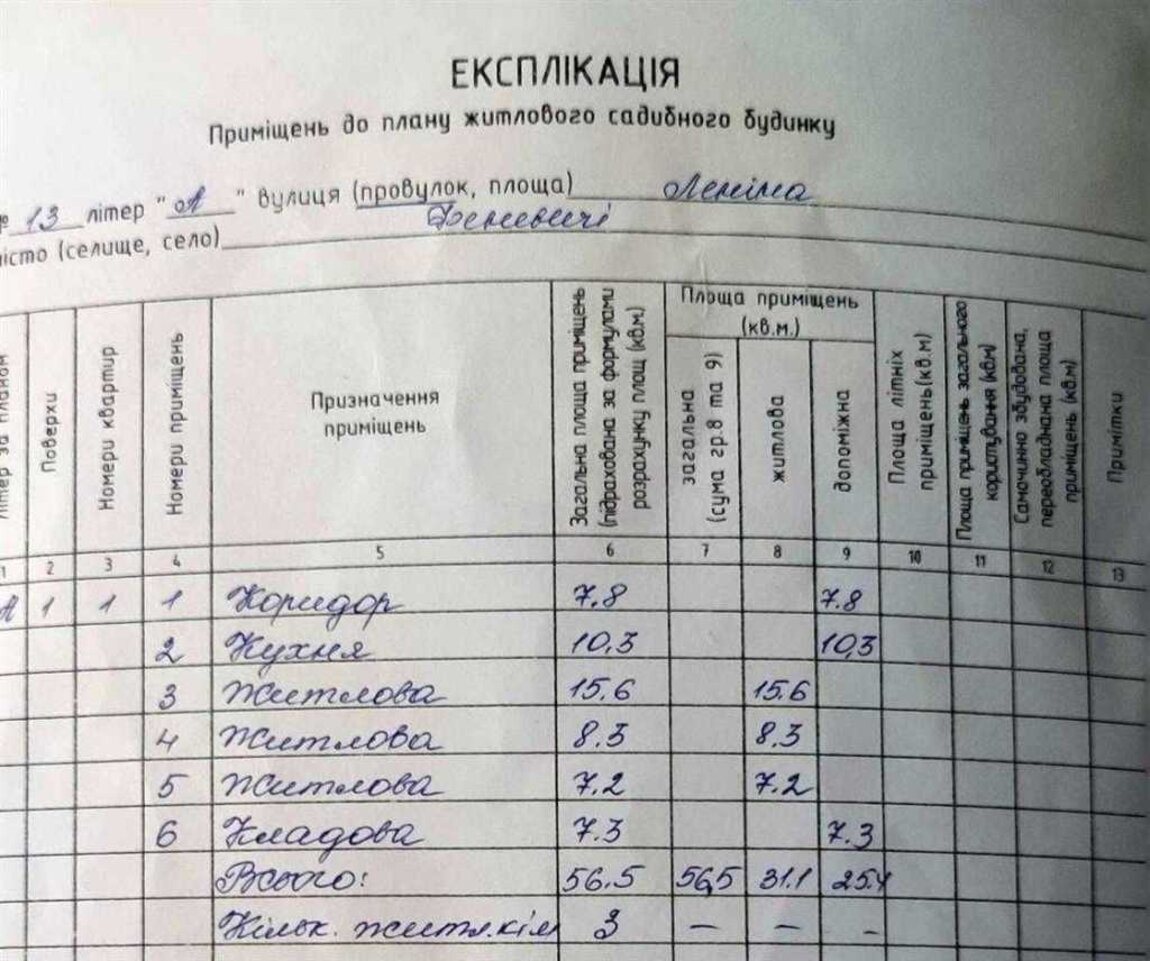 ЕКСПЛІКАЦІЯ
Приміщень до плану житлового садибного будинку
№ 13 літер "А" вулиця (провулок, площа) Леніна
місто (селище, село) Феневичі
Літер за планом
Поверхи
Номери квартир
Номери приміщень
Призначення
приміщень
Загальна площа приміщень
(підрахована за формулами
розрахунку площ (кв.м)
Площа приміщень
(кв.м.)
загальна
(сума гр.8 та 9)
житлова
допоміжна
Площа літніх
приміщень(кв.м)
Площа приміщень загального
користування (кв.м)
Самочинно збудована,
переобладнана площа
приміщень (кв.м)
Примітки
1 2 3 4 5 6 7 8 9 10 11 12 13
А 1 1 1 Коридор 7.8 7.8
2 Кухня 10,3 10,3
3 Житлова 15.6 15.6
4 Житлова 8.3 8.3
5 Житлова 7.2 7.2
6 Кладова 7.3 7.3
Всього: 56.5 56,5 31.1 25.4
Кільк. житл.кім 3 – – –